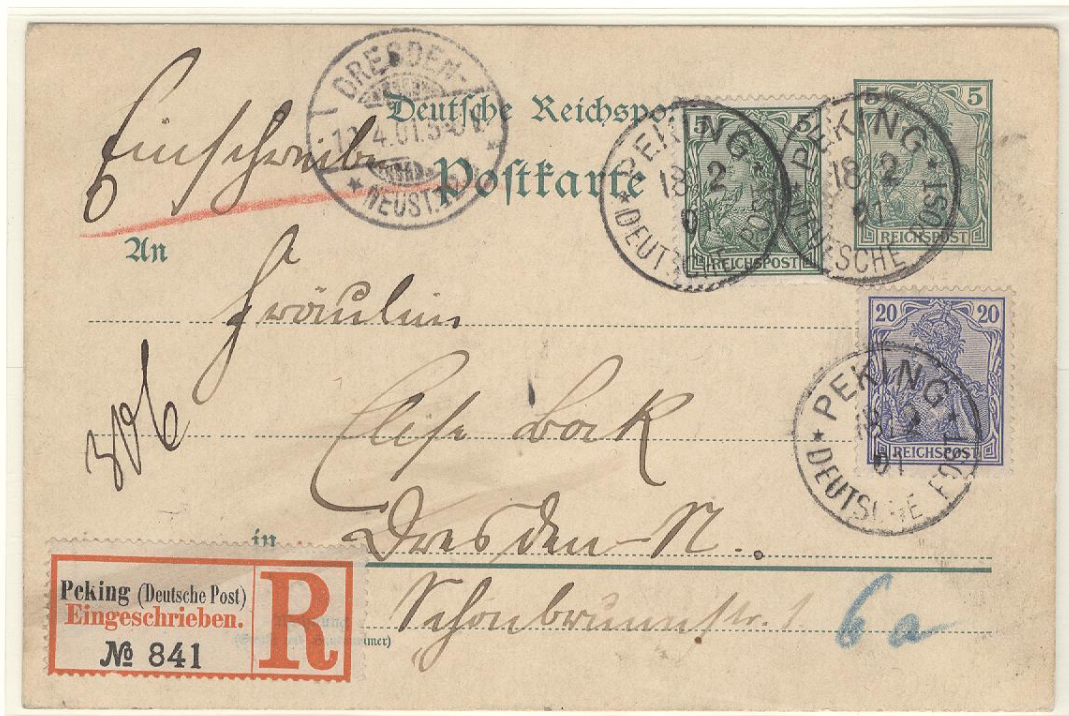 Einschreiben
DRESDEN-
4.01.5-6
NEUST.
Deutsche Reichspost
Postkarte
5 5
REICHSPOST
PEKING
18 2
01
DEUTSCHE POST
5 5
REICHSPOST
PEKING
18 2
01
DEUTSCHE POST
An
Fräulein
20 20
REICHSPOST
PEKING
2
01
DEUTSCHE POST
Else Bock
in
Dresden-N.
Schönbrunnstr. 1
6a
Peking (Deutsche Post)
Eingeschrieben.
№ 841
R